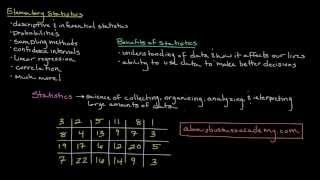 Elementary Statistics
• descriptive & inferential statistics
• probabilities
• sampling methods
• confidence intervals
• linear regression
• correlation
• much more!
Benefits of Statistics
• understanding of data & how it affects our lives
• ability to use data to make better decisions
Statistics → science of collecting, organizing, analyzing & interpreting
large amounts of data
3 2 5 11 8 1
8 4 13 9 7 3
19 17 6 12 20 5
7 22 16 14 9 3